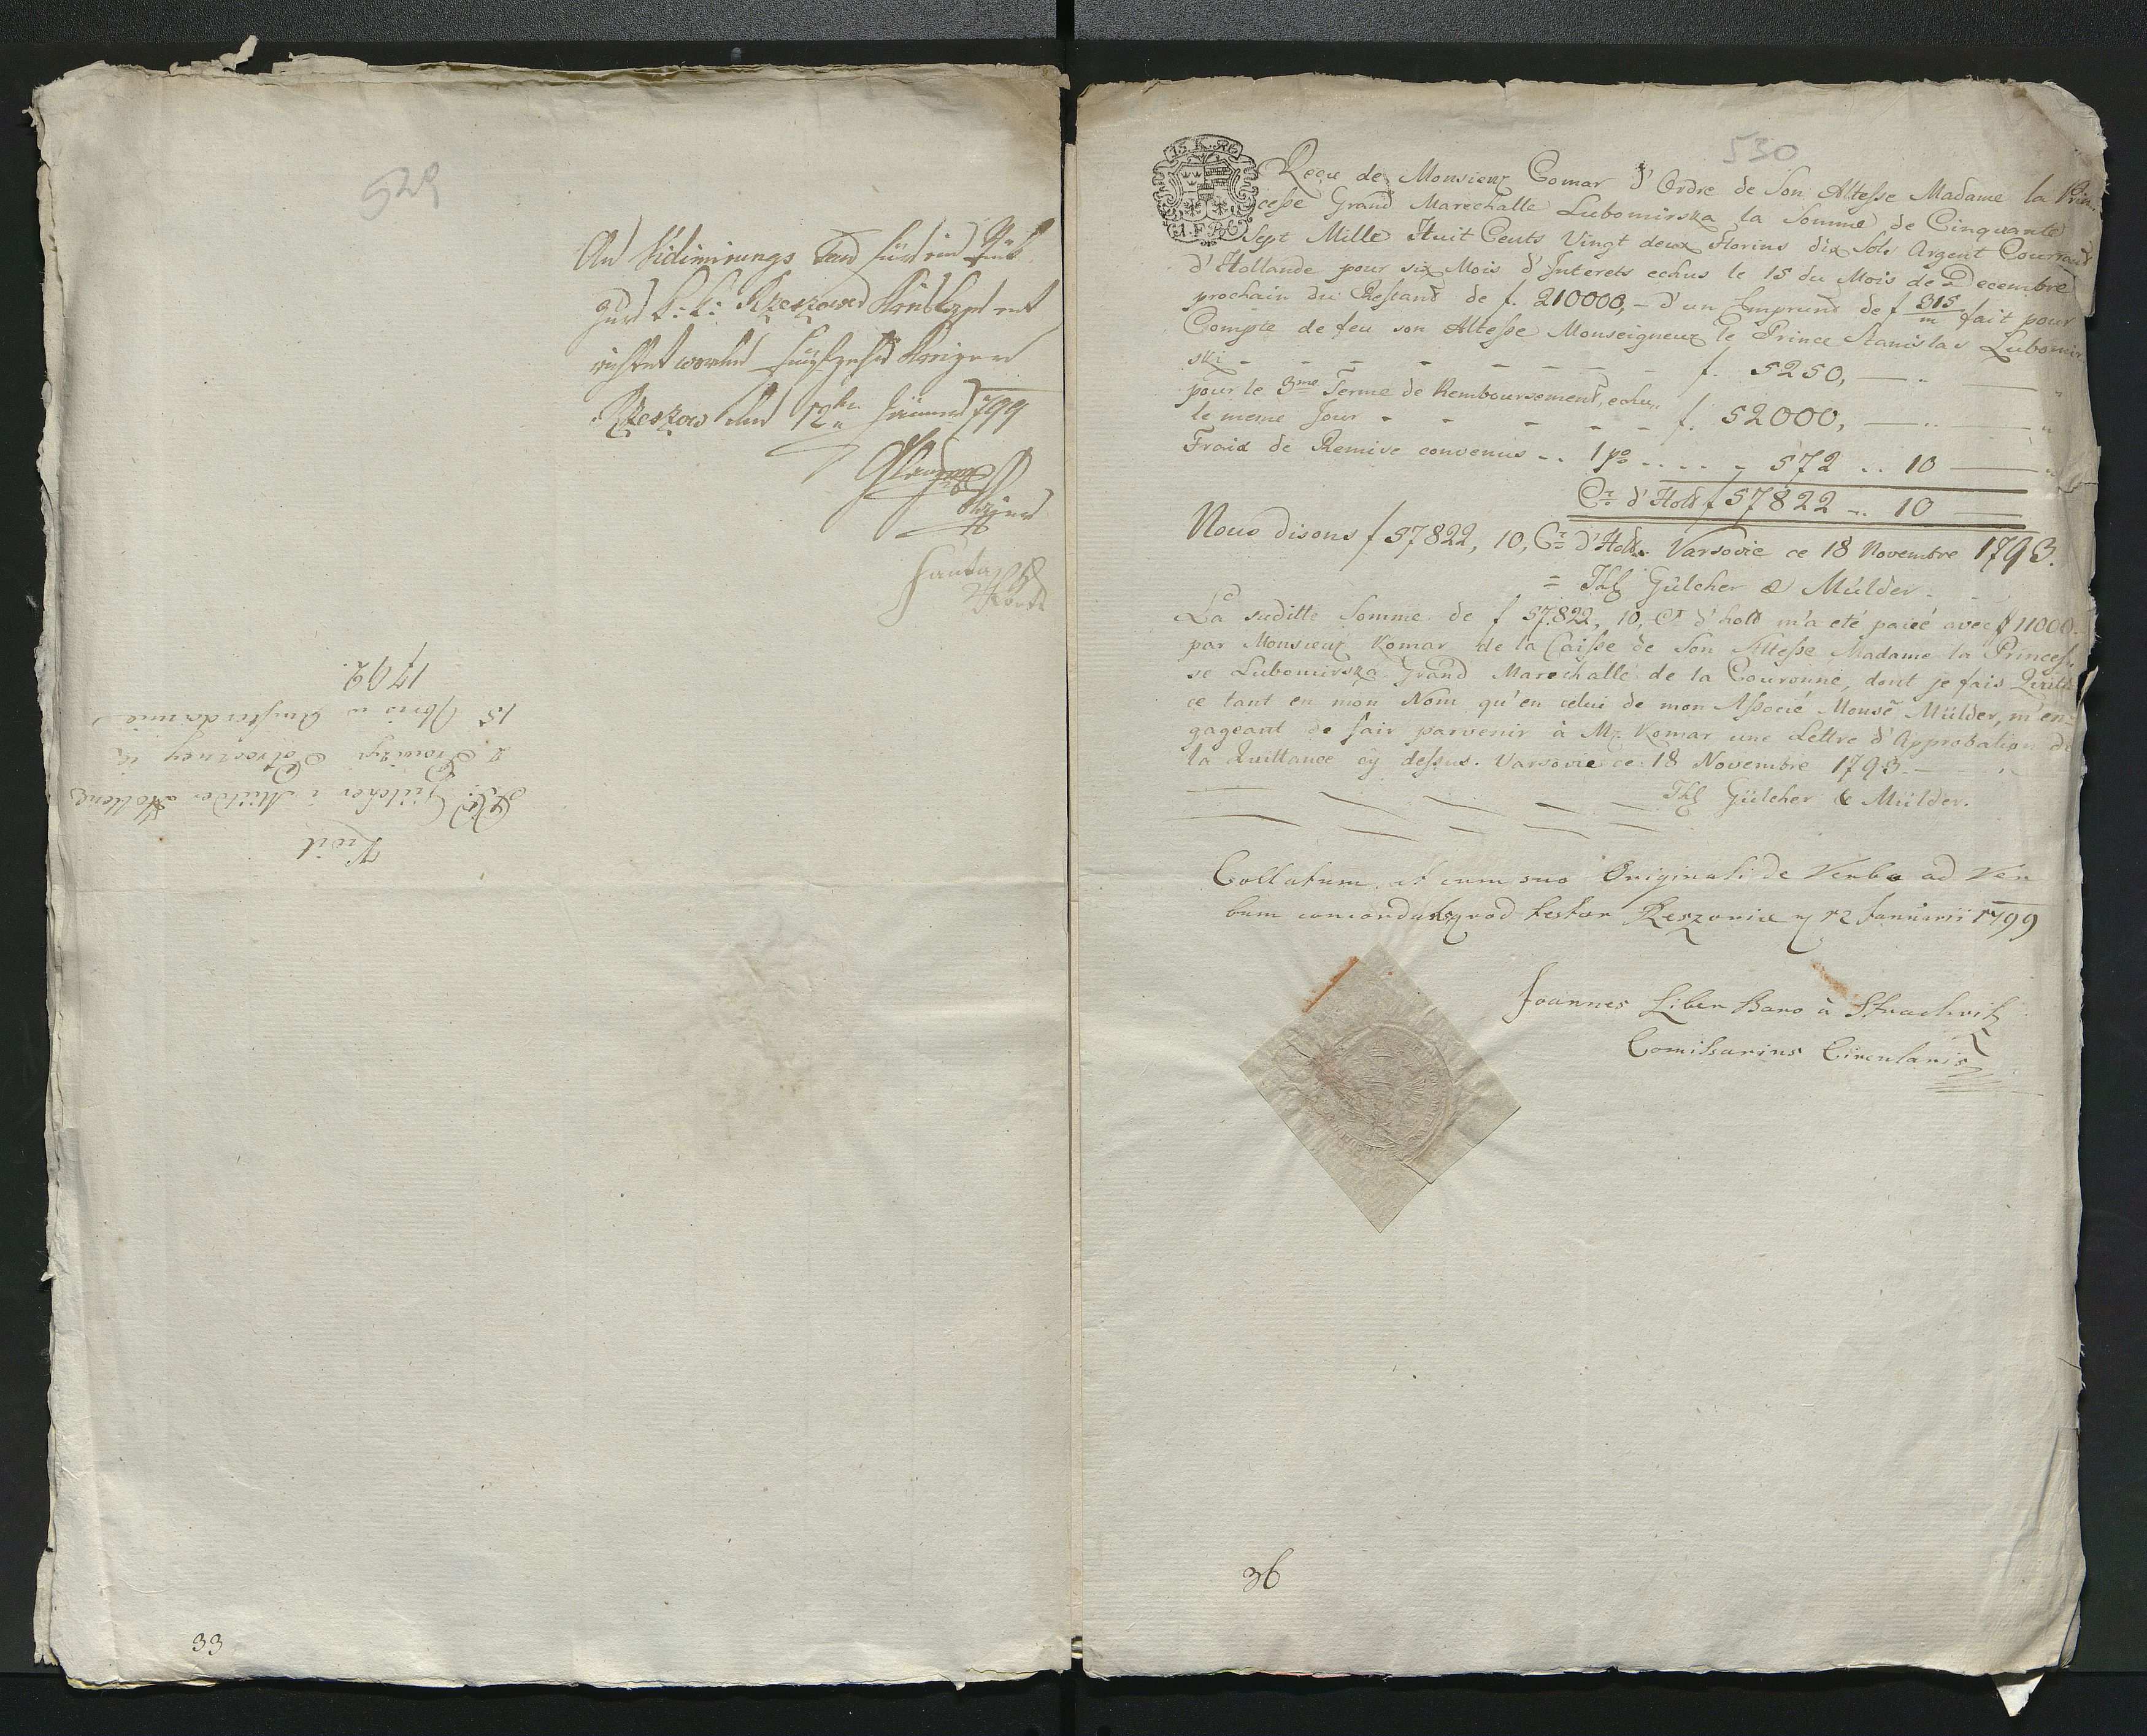 529
An Vidimirungs Taxe für ein Stük
zur k: k: Rzeszower Kreiskassa ent
richtet worden fünfzehn Kreizer
Rzeszow den 12ten Jänner 799
Kwit
PP. Gülcher i Mülder Hollend
z Prowizyi Półroczney
15 Xbris w Amsterdamie
1792.
33
530
15. K. R.
Reçu de Monsieur Comar d'Ordre de Son Altesse Madame la Prin-
cesse Grand Marechalle Lubomirska la Somme de Cinquante
Sept Mille Huit Cents Vingt deux Florins dix Sols Argent Courrant
d'Hollande pour six Mois d'Interets echus le 15 du Mois de Decembre
prochain du Restand de f. 210000,- d'un Emprund de f 315/m fait pour
Compte de feu son Altesse Monseigneur le Prince Stanislas Lubomir
ski - - - - - - - - f. 5250, — „ —
pour le 3me Terme de Remboursement, echu,
le meme Jour - - - - - f. 52000, — „ —
Fraix de Remise convenus .. 1 po .... „ 572 .. 10 —
Ct d'Holld f 57822 .. 10 —
Nous disons f 57822, 10, Ct d'Holl. Varsovie ce 18 Novembre 1793.
= Gülcher & Mülder.
La suditte Somme de f 57822, 10, Ct d'holld m'a eté paieé avec # 11000
par Monsieur Komar de la Caisse de Son Altesse Madame la Princes-
se Lubomirska Grand Marechalle de la Couronne, dont je fais Quitan
ce tant en mon Nom, qu'en celui de mon Associé Monsr Mülder, m'en-
gageant de fair parvenir à Mr. Komar une Lettre d'Approbation de
la Quittance cy dessus. Varsovie ce 18 Novembre 1793.
Gülcher & Mülder.
Collatum, et cum suo Originali de Verbo ad Ver
bum concordat, quod testor Reszoviae 12 Januarii 1799
Joannes Liber Baro à Strachwitz
Comissarius Circularis
36